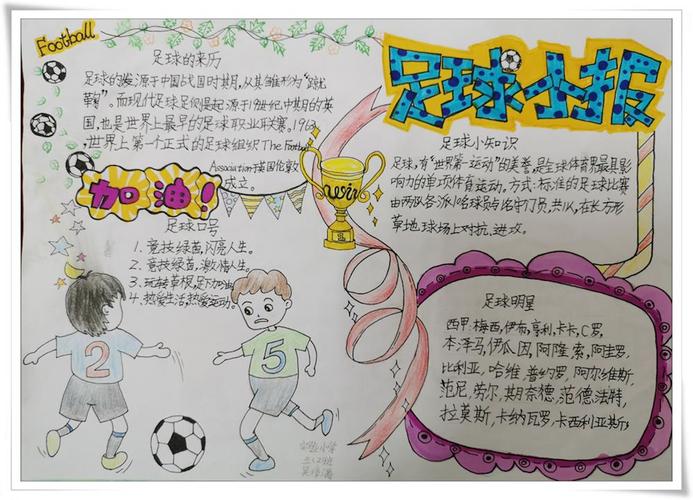 Football
足球小报
足球的来历
足球的发源于中国战国时期,从其雏形为"蹴
鞠"。而现代足球足阀是起源于19世纪中期的英
国,也是世界上最早的足球职业联赛。1963
,世界上第一个正式的足球组织The Football
Association于英国伦敦
成立。
加油!
足球口号
1. 竞技绿茵,闪亮人生。
2. 竞技绿茵,激情人生。
3. 玩转卓极,足下加油
4. 热爱生活,热爱运动。
win
1
足球小知识
足球,有"世界第一运动"的美誉,是全球体育界最具影
响力的单项体育运动,方式:标准的足球比赛
由两队各派10名球员与1名守门员,共11人,在长方形
草地球场上对抗、进攻。
足球明星
西甲:梅西,伊布,亨利,卡卡,C罗,
本泽马,伊瓜因,阿隆索,阿圭罗,
比利亚,哈维,普约罗,阿尔维斯,
范尼,劳尔,斯奈德,范德法特,
拉莫斯,卡纳瓦罗,卡西利亚斯;
2
5
实验小学
三(2)班